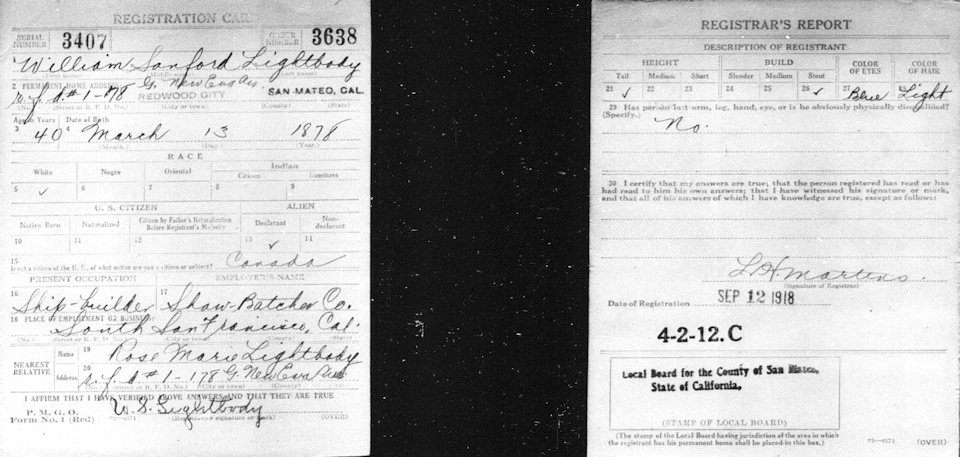 REGISTRATION CARD
SERIAL NUMBER 3407 ORDER NUMBER 3638
William Sanford Lightbody
(First name) (Last name)
2 PERMANENT HOME ADDRESS
r.f.d #1-178 G. New Era Av. REDWOOD CITY SAN MATEO, CAL.
(No.) (Street or R. F. D. No.) (City or town) (County) (State)
Age in Years Date of Birth
3 40 4 March 13 1878
(Month.) (Day.) (Year.)
RACE
White Negro Oriental Indian
Citizen Noncitizen
5 ✓ 6 7 8 9
U. S. CITIZEN ALIEN
Native Born Naturalized Citizen by Father's Naturalization Before Registrant's Majority Declarant Non-declarant
10 11 12 13 ✓ 14
15
If not a citizen of the U. S., of what nation are you a citizen or subject? Canada
PRESENT OCCUPATION EMPLOYER'S NAME
16 Ship-builder 17 Shaw-Batcher Co.
18 PLACE OF EMPLOYMENT OR BUSINESS
South San Francisco, Cal.
(No.) (Street or R. F. D. No.) (City or town) (County) (State)
NEAREST RELATIVE Name 19 Rose Marie Lightbody
Address 20 r.f.d #1-178 G. New Era
(No.) (Street or R. F. D. No.) (City or town) (State)
I AFFIRM THAT I HAVE VERIFIED ABOVE ANSWERS AND THAT THEY ARE TRUE
P. M. G. O.
Form No. 1 (Red) W. S. Lightbody
(Registrant's signature or mark) (OVER)
REGISTRAR'S REPORT
DESCRIPTION OF REGISTRANT
HEIGHT BUILD COLOR OF EYES COLOR OF HAIR
Tall Medium Short Slender Medium Stout
21 ✓ 22 23 24 25 26 ✓ 27 Blue 28 Light
29 Has person lost arm, leg, hand, eye, or is he obviously physically disqualified?
(Specify.) No.
30 I certify that my answers are true; that the person registered has read or has
had read to him his own answers; that I have witnessed his signature or mark,
and that all of his answers of which I have knowledge are true, except as follows:
L H Martens
(Signature of Registrar)
Date of Registration SEP 12 1918
4-2-12. C
Local Board for the County of San Mateo,
State of California.
(STAMP OF LOCAL BOARD)
(The stamp of the Local Board having jurisdiction of the area in which
the registrant has his permanent home shall be placed in this box.)
(OVER)